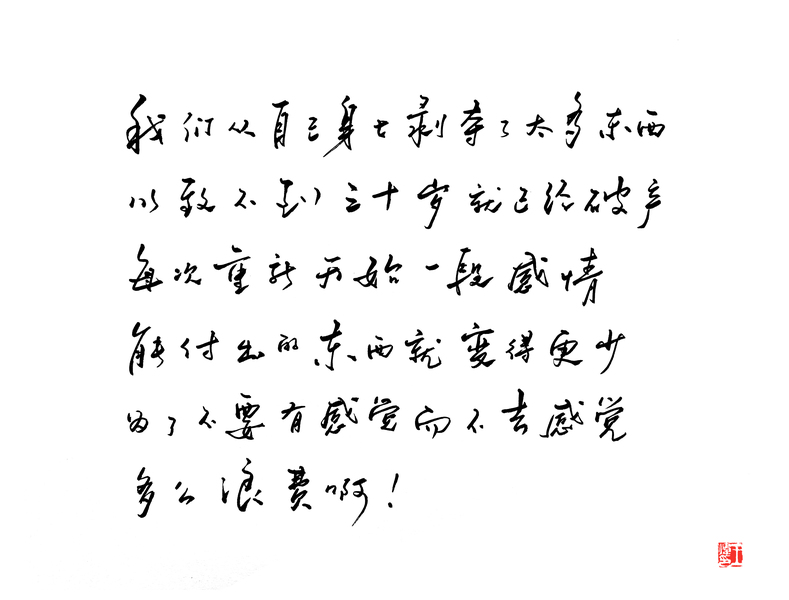 我们从自己身上剥夺了太多东西
以致不到三十岁就已经破产
每次重新开始一段感情
能付出的东西就变得更少
为了不要有感觉而不去感觉
多么浪费啊！